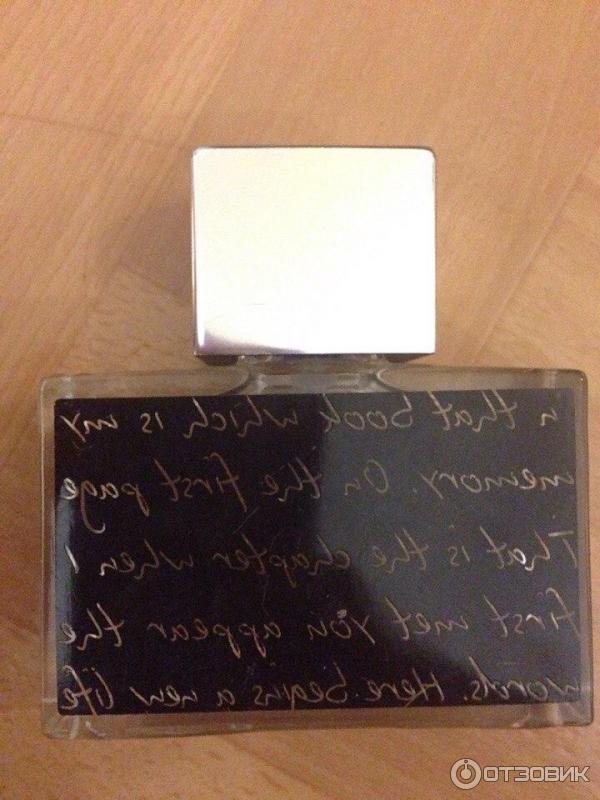 n that book which is my
memory. On the first page
That is the chapter when I
first met you appear the
words. Here begins a new life
ОТЗОВИК